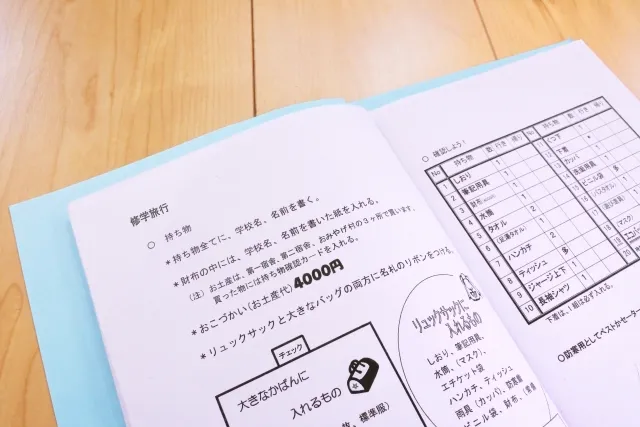 修学旅行
○ 持ち物
＊持ち物全てに、学校名、名前を書く。
＊財布の中には、学校名、名前を書いた紙を入れる。
(注) お土産は、第一宿舎、第二宿舎、おみやげ村の3ヶ所で買います。
買った物には持ち物確認カードを入れる。
＊おこづかい(お土産代) 4000円
＊リュックサックと大きなバッグの両方に名札のリボンをつける。
チェック
大きなかばんに
入れるもの
標準服)
リュックサックに
入れるもの
しおり、筆記用具、
水筒、(マスク)、
エチケット袋
ハンカチ、ティッシュ
雨具 (カッパ)、防寒着
ビニル袋、財布、
○ 確認しよう！
No 持ち物 数 行き 帰り No 持ち物 数 行き 帰り
1 しおり 1
2 筆記用具 1
3 財布 1
4 水筒 1
5 タオル 2
6
7 ハンカチ 2
8 ティッシュ 多
9 ジャージ上下 1
10 長袖シャツ 1
くつ下
12 下着
13 カッパ 1
洗面用具
ビニル袋
マスク
下着は、1組は必ず入れる。
○防寒用としてベストかセーター